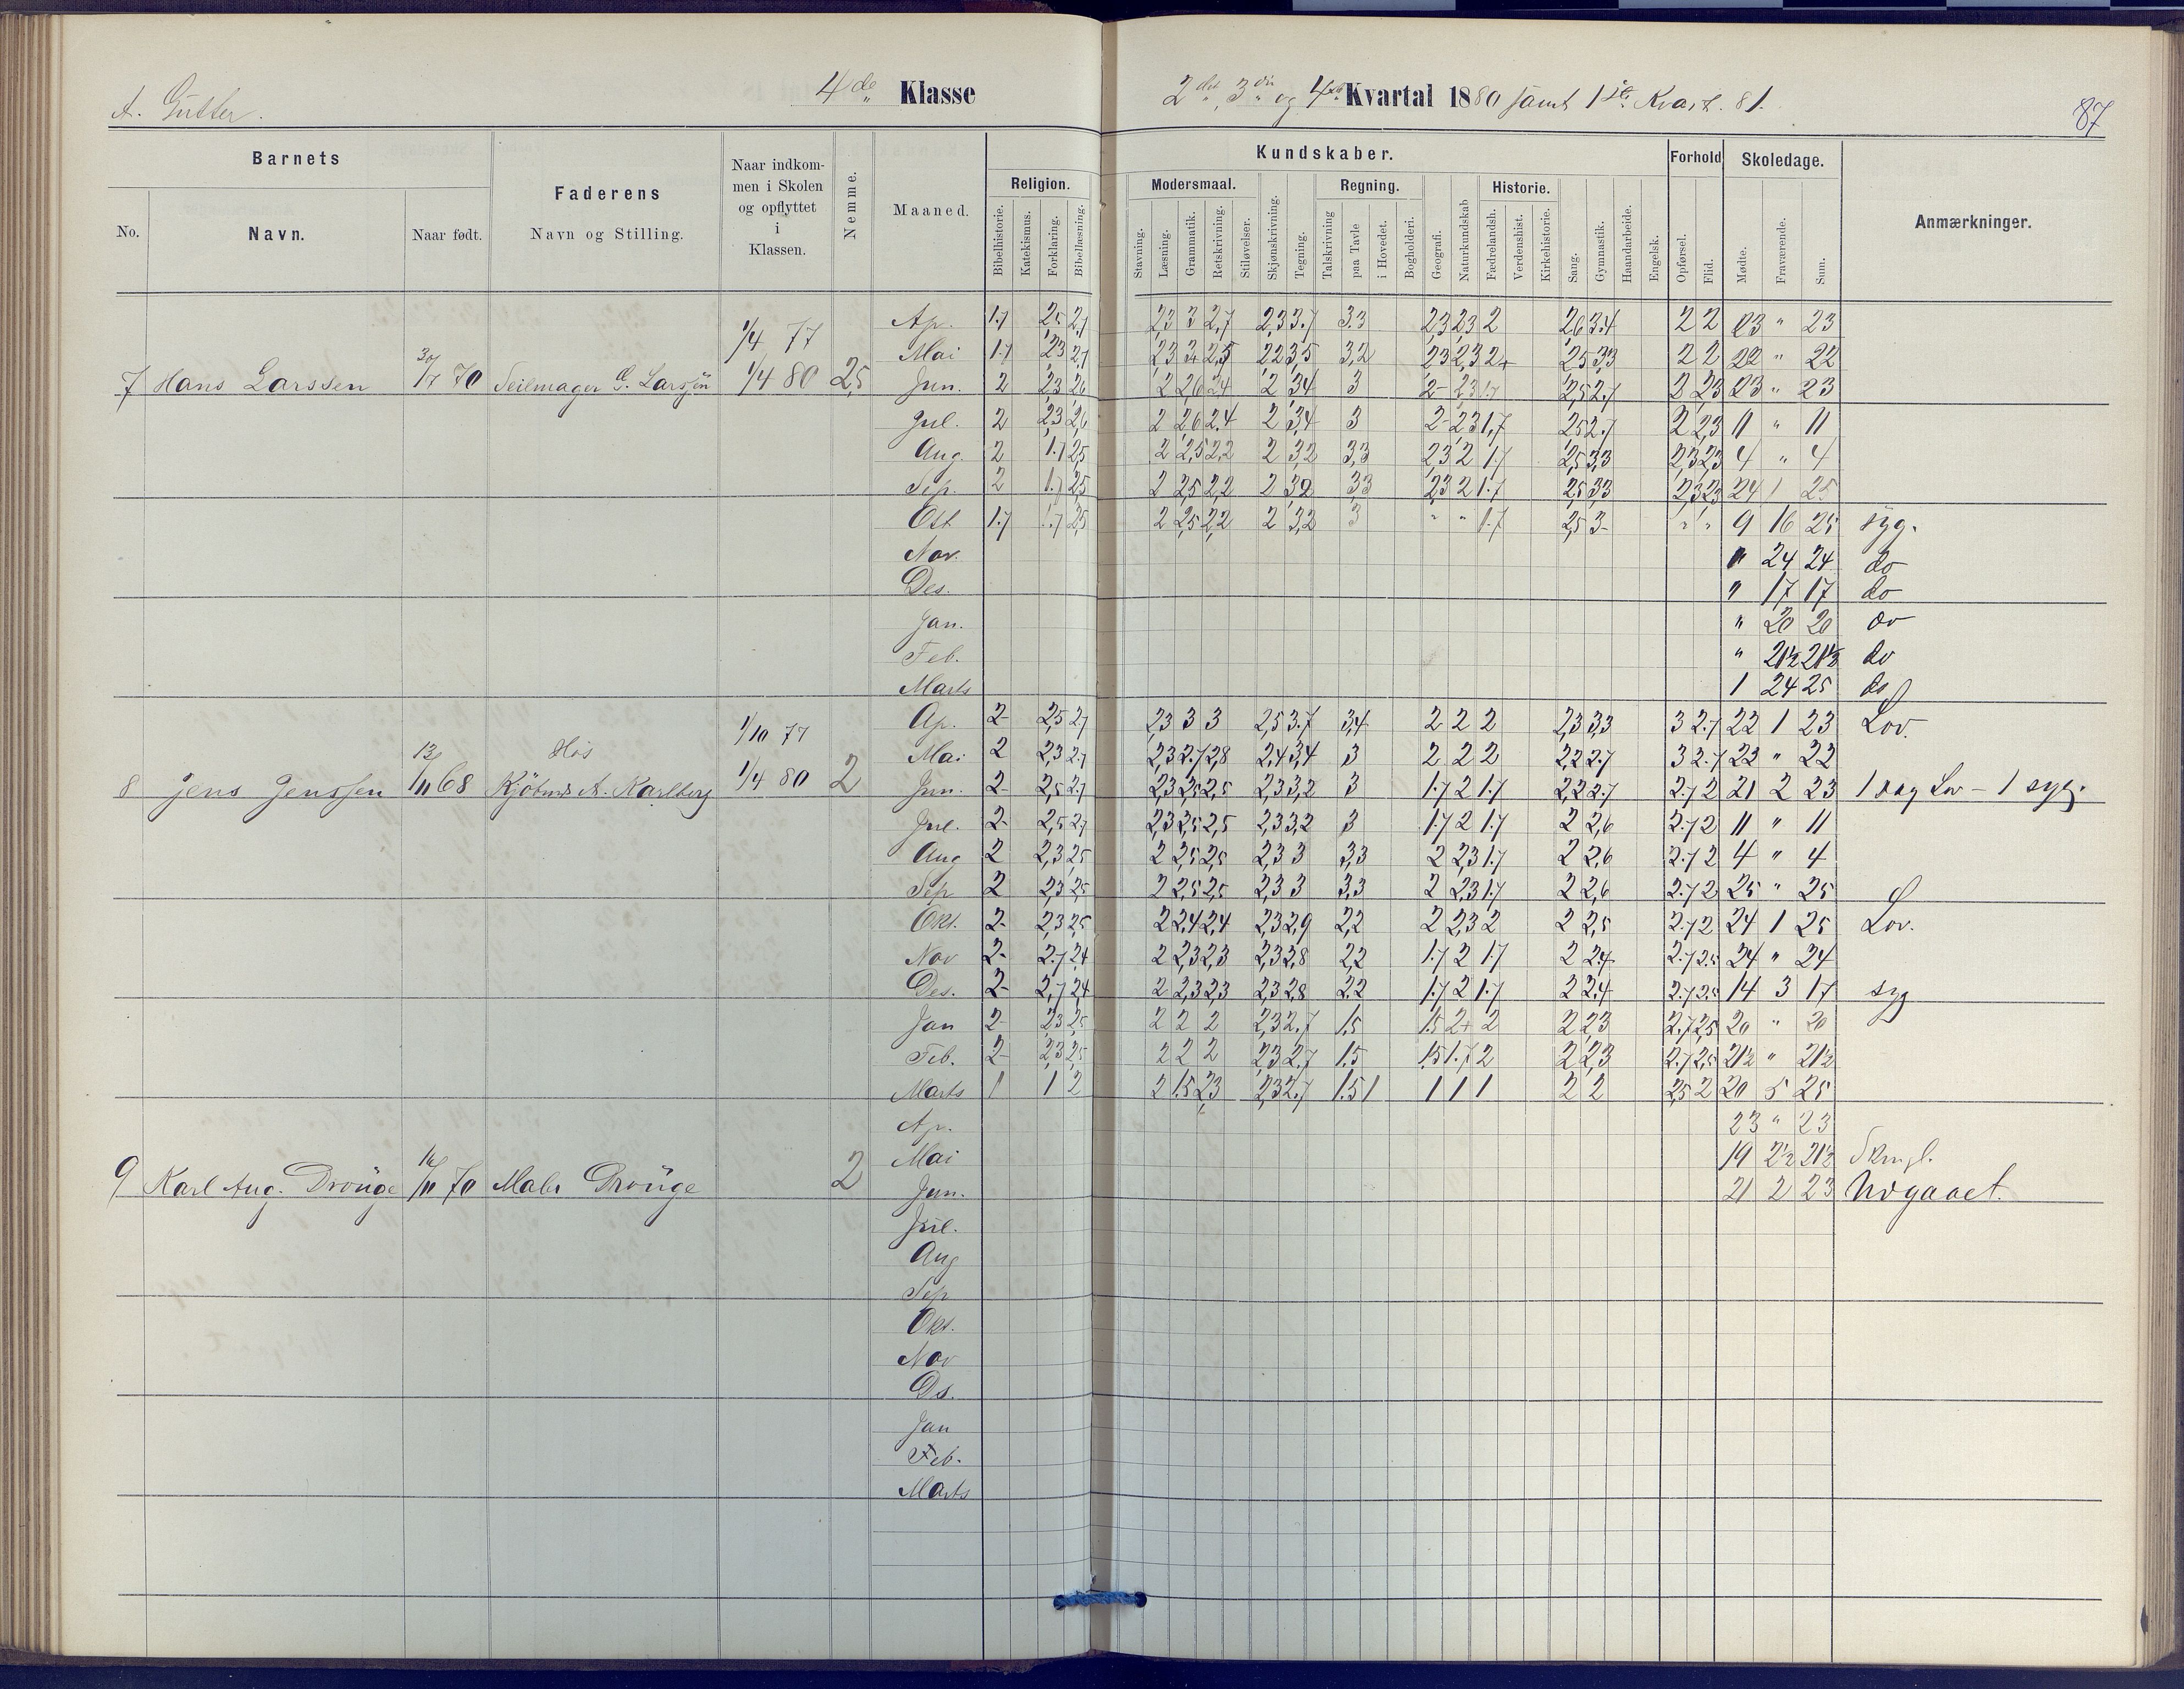 A. Gutter.
4de Klasse
2det, 3die og 4de Kvartal 1880 samt 1ste Kvart. 81.
87
Barnets
No.
Navn.
Naar født.
Faderens
Navn og Stilling.
Naar indkom-
men i Skolen
og opflyttet
i
Klassen.
Nemme.
Maaned.
Kundskaber.
Religion.
Bibelhistorie.
Katekismus.
Forklaring.
Bibellæsning.
Modersmaal.
Stavning.
Læsning.
Grammatik.
Retskrivning.
Stiløvelser.
Skjønskrivning.
Tegning.
Regning.
Talskrivning
paa Tavle
i Hovedet.
Bogholderi.
Geografi.
Naturkundskab
Historie.
Fædrelandsh.
Verdenshist.
Kirkehistorie.
Sang.
Gymnastik.
Haandarbeide.
Engelsk.
Forhold
Opførsel.
Flid.
Skoledage.
Mødte.
Fraværende.
Sum.
Anmærkninger.
7 Hans Larssen 30/7 70 Seilmager G. Larssen 1/4 77 1/4 80 2,5
Ap. 1.7 2,5 2,7 2,3 3 2,7 2,3 3.7 3.3 2,3 2,3 2 2,6 3.4 2 2 23 " 23
Mai 1.7 2,3 2,7 2,3 3,4 2,5 2,2 3,5 3,2 2,3 2,3 2+ 2,5 3,3 2 2 22 " 22
Jun. 2 2,3 2,6 2 2,6 2,4 2 3,4 3 2- 2,3 1.7 2,5 2.7 2 2,3 23 " 23
Jul. 2 2,3 2,6 2 2,6 2,4 2 3,4 3 2- 2,3 1,7 2,5 2.7 2 2,3 11 " 11
Aug. 2 1.7 2,5 2 2,5 2,2 2 3,2 3,3 2,3 2 1.7 2,5 3,3 2,3 2,3 4 " 4
Sep. 2 1.7 2,5 2 2,5 2,2 2 3,2 3,3 2,3 2 1.7 2,5 3,3 2,3 2,3 24 1 25
Okt 1.7 1.7 2,5 2 2,5 2,2 2 3,2 3 " " 1.7 2,5 3- " " 9 16 25 syg.
Nov. " 24 24 do
Des. " 17 17 do
Jan. " 20 20 do
Feb. " 21½ 21½ do
Marts 1 24 25 do
8 Jens Jenssen 13/11 68 Hos Kjöbmd A. Karlberg 1/10 77 1/4 80 2
Ap. 2- 2,5 2,7 2,3 3 3 2,5 3.7 3,4 2 2 2 2,3 3,3 3 2.7 22 1 23 Lov.
Mai 2 2,3 2.7 2,3 2.7 2,8 2,4 3,4 3 2 2 2 2,2 2.7 3 2.7 22 " 22
Jun. 2- 2,5 2.7 2,3 2,5 2,5 2,3 3,2 3 1.7 2 1.7 2,2 2.7 2.7 2 21 2 23 1 dag Lov - 1 syg.
Jul. 2- 2,5 2,7 2,3 2,5 2,5 2,3 3,2 3 1.7 2 1.7 2 2,6 2.7 2 11 " 11
Aug 2 2,3 2,5 2 2,5 2,5 2,3 3 3,3 2 2,3 1.7 2 2,6 2.7 2 4 " 4
Sep 2 2,3 2,5 2 2,5 2,5 2,3 3 3,3 2 2,3 1.7 2 2,6 2.7 2 25 " 25
Okt. 2- 2,3 2,5 2 2,4 2,4 2,3 2,9 2,2 2 2,3 2 2 2,5 2.7 2 24 1 25 Lov.
Nov 2- 2.7 2,4 2 2,3 2,3 2,3 2,8 2,2 1.7 2 1.7 2 2,4 2.7 2,5 24 " 24
Des. 2- 2,7 2,4 2 2,3 2,3 2,3 2,8 2,2 1.7 2 1.7 2 2,4 2.7 2,5 14 3 17 syg
Jan 2- 2,3 2,5 2 2 2 2,3 2.7 1,5 1.5 2+ 2 2 2,3 2.7 2,5 20 " 20
Feb. 2- 2,3 2,5 2 2 2 2,3 2,7 1.5 1.5 1.7 2 2 2,3 2.7 2,5 21½ " 21½
Marts 1 1 2 2 1.5 2,3 2,3 2.7 1.5 1 1 1 1 2 2 2,5 2 20 5 25
9 Karl Aug. Drouge 16/11 70 Maler Drouge 2
Ap. 23 " 23
Mai 19 2½ 21½
Jun. 21 2 23 Udgaaet.
Jul.
Aug
Sep
Okt.
Nov
Ds.
Jan
Feb.
Marts